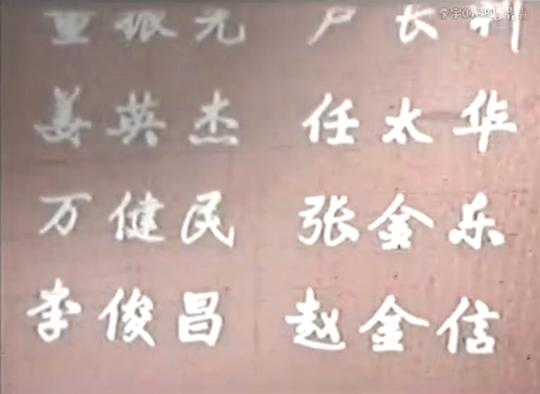 姜英杰 任太华
万健民 张金乐
李俊昌 赵金信